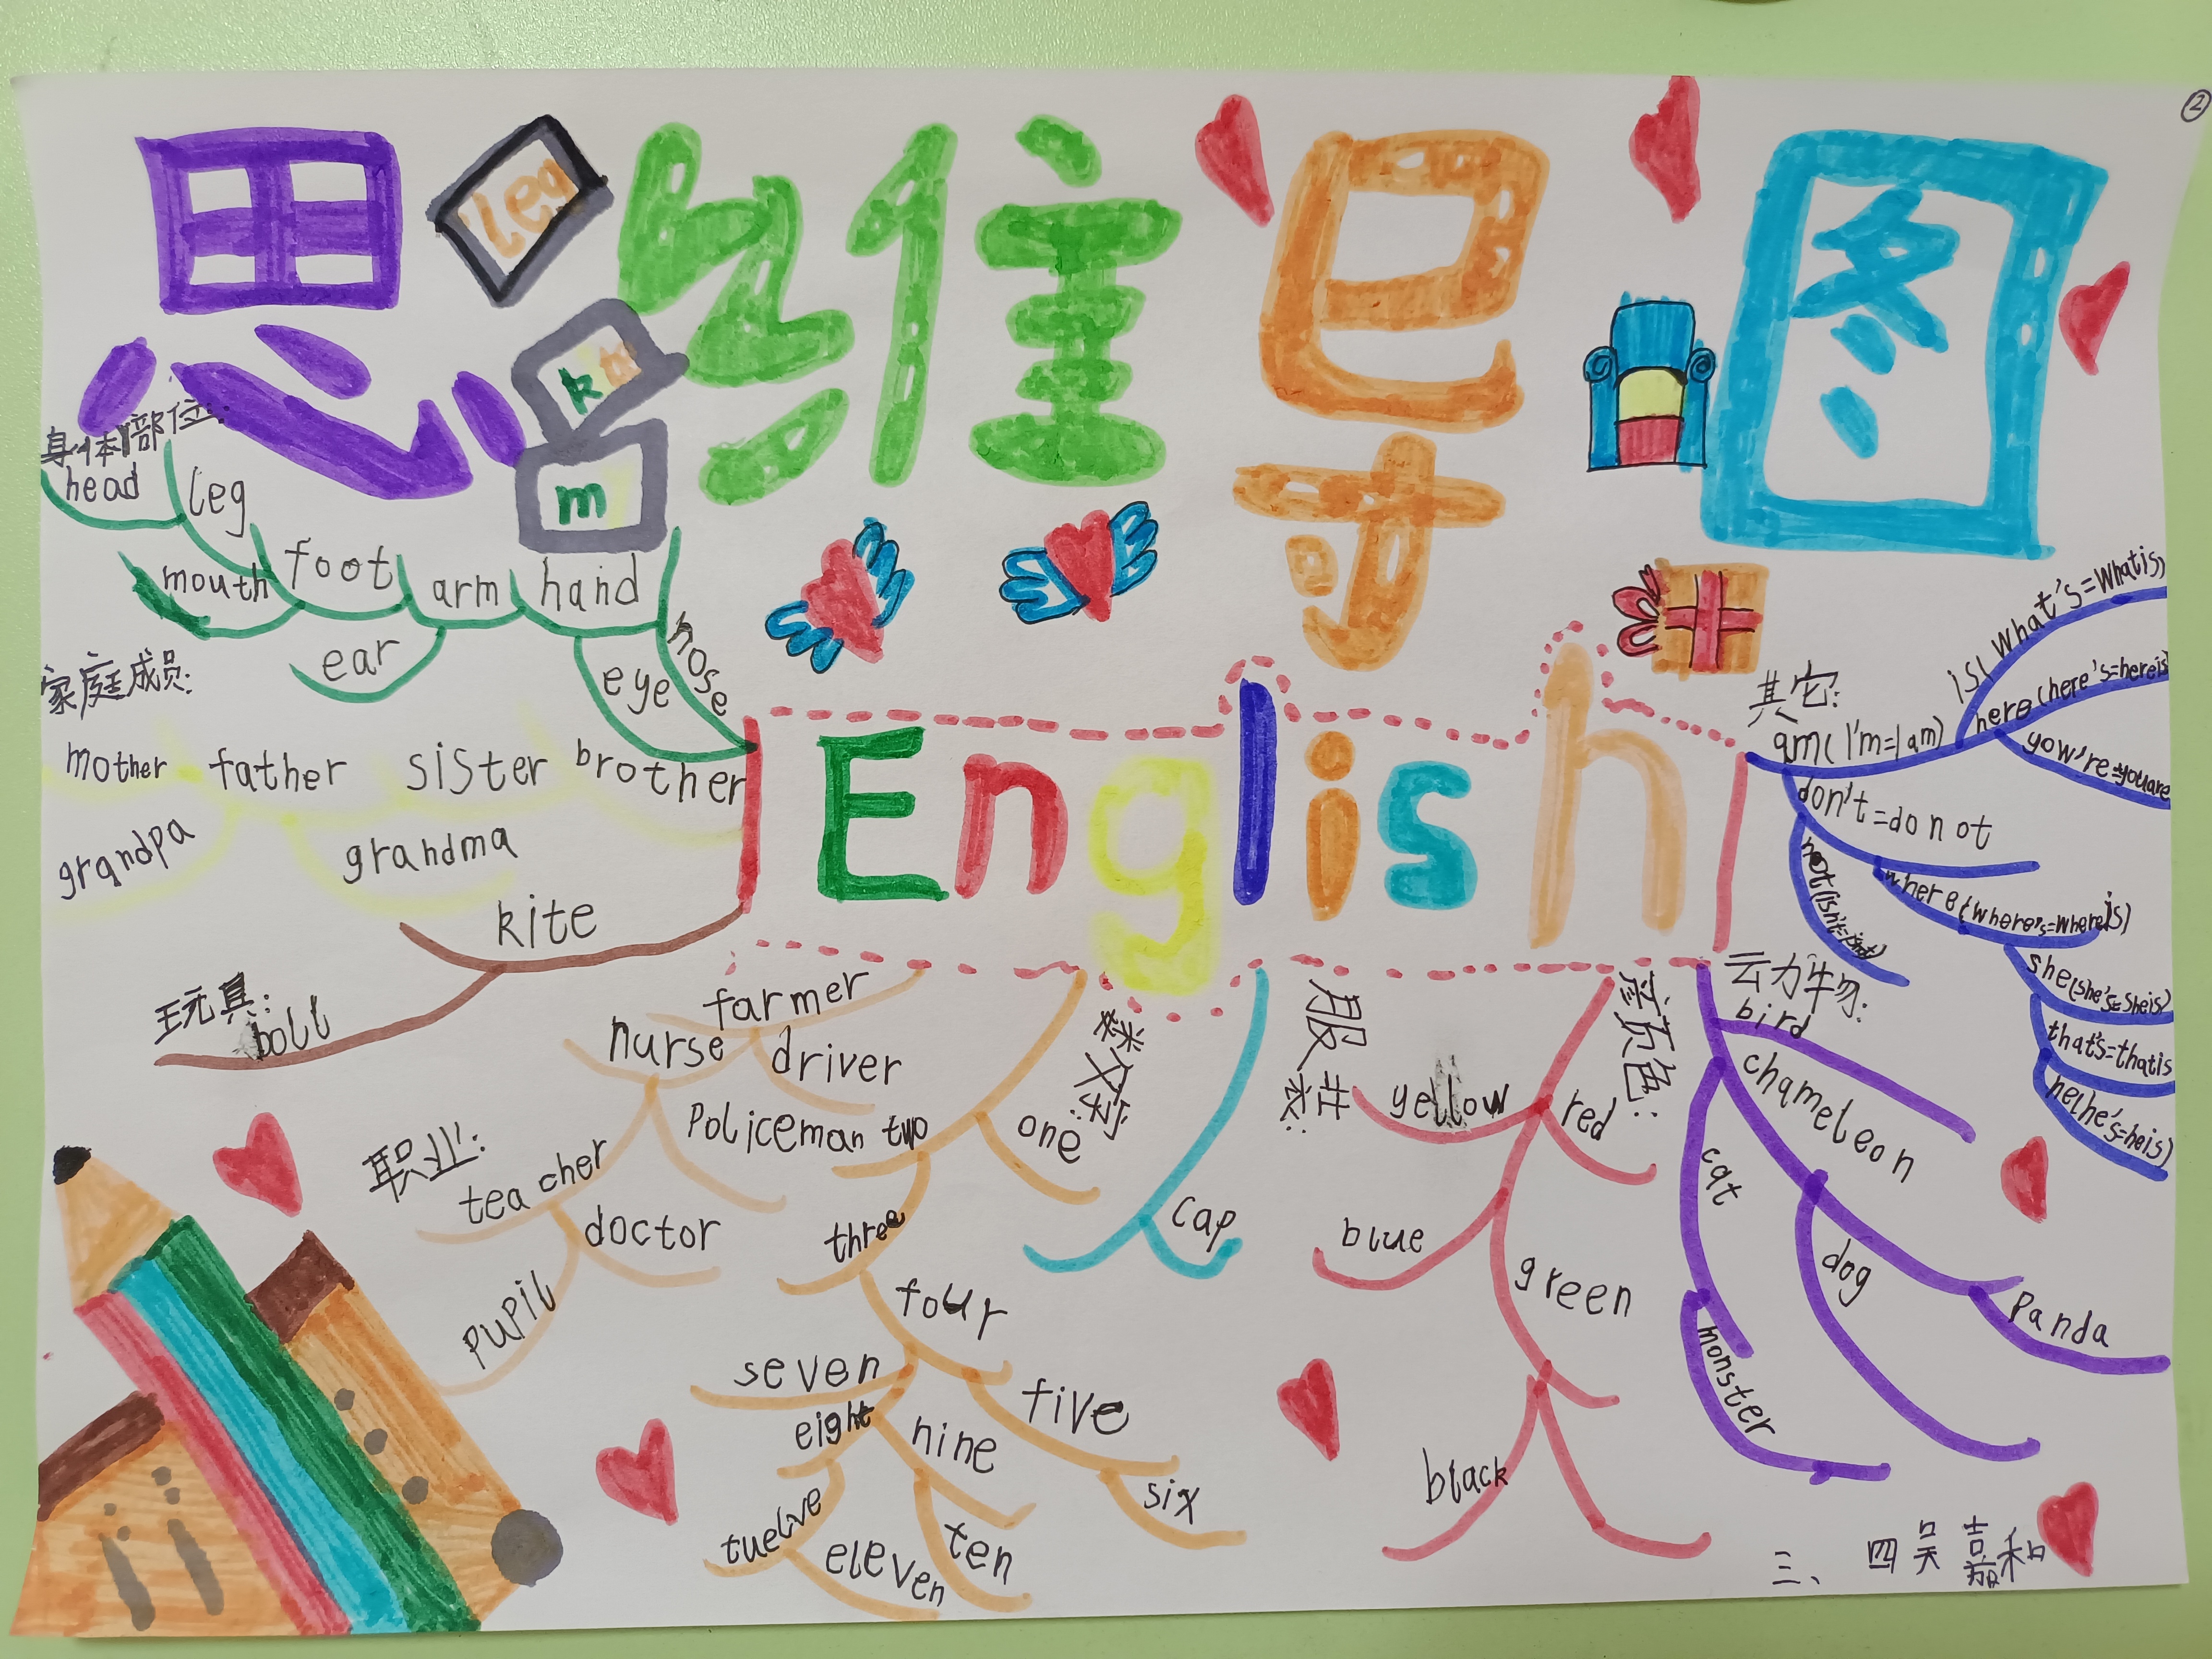 ②
思维导图
Leg
k
m
身体部位:
head
leg
mouth
foot
arm
hand
ear
eye
nose
家庭成员:
mother
father
sister
brother
grandpa
grandma
玩具:
kite
boll
English
职业:
farmer
nurse
driver
policeman
teacher
doctor
pupil
数字:
one
two
three
four
five
six
seven
eight
nine
ten
eleven
twelve
服装:
cap
颜色:
yellow
red
blue
green
black
动物:
bird
chameleon
cat
dog
panda
monster
其它:
am(I'm=I am)
is(What's=Whatis)
here(here's=hereis)
yow're=youare
don't=donot
not(isn't=isnot)
where(where's=whereis)
she(she's=sheis)
that's=thatis
he(he's=heis)
三、四吴嘉和